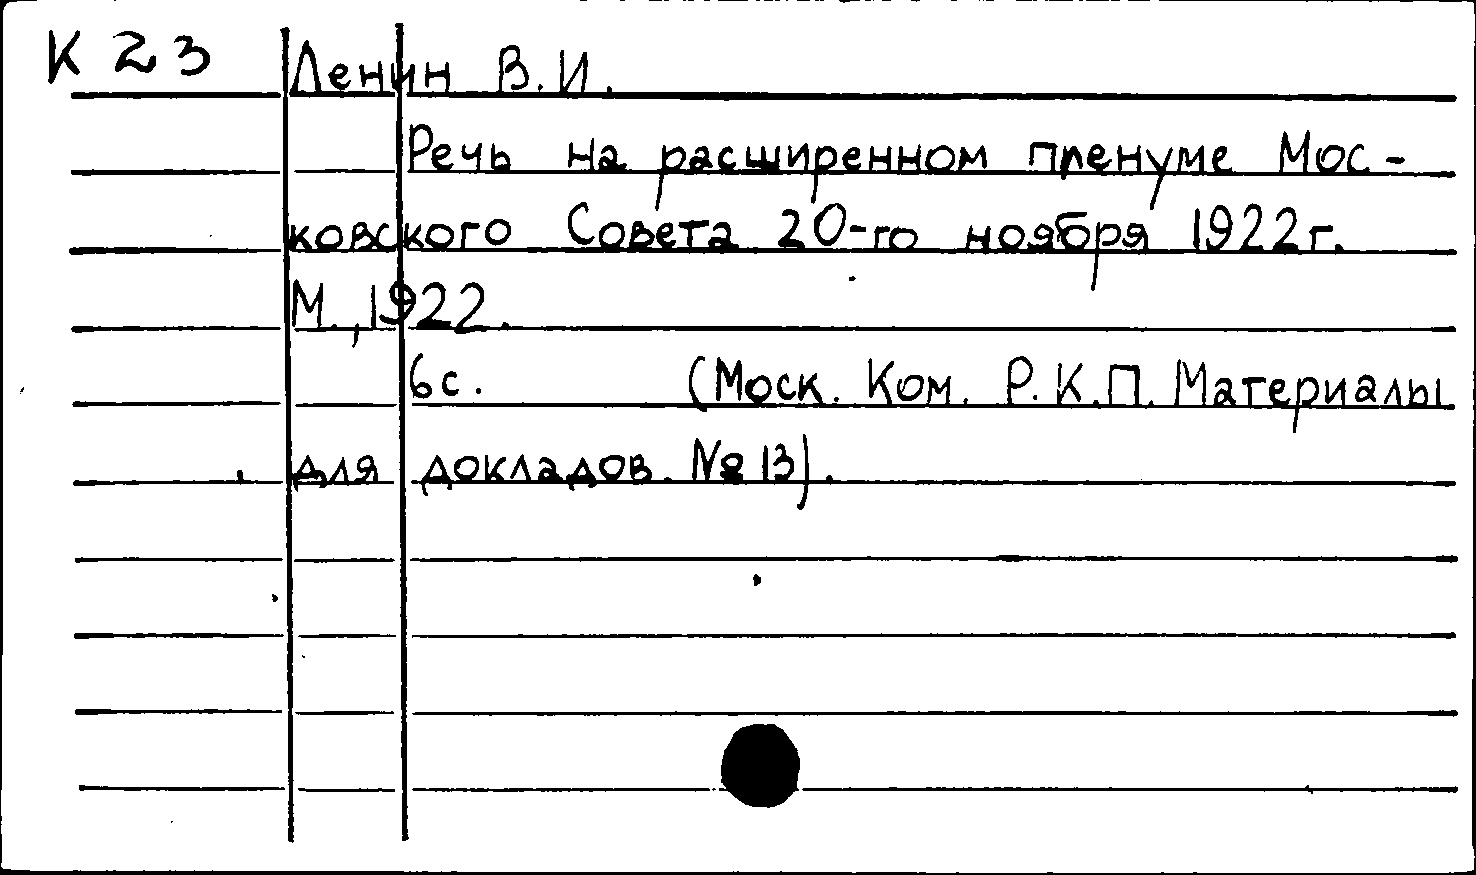 К 23 Ленин В.И.
Речь на расширенном пленуме Мос-
ковского Совета 20-го ноября 1922г.
М., 1922.
6с. (Моск. Ком. Р.К.П. Материалы
для докладов. № 13).